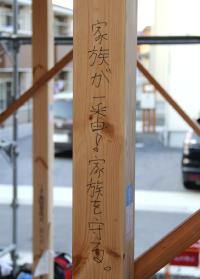 家族が一番!家族を守る。